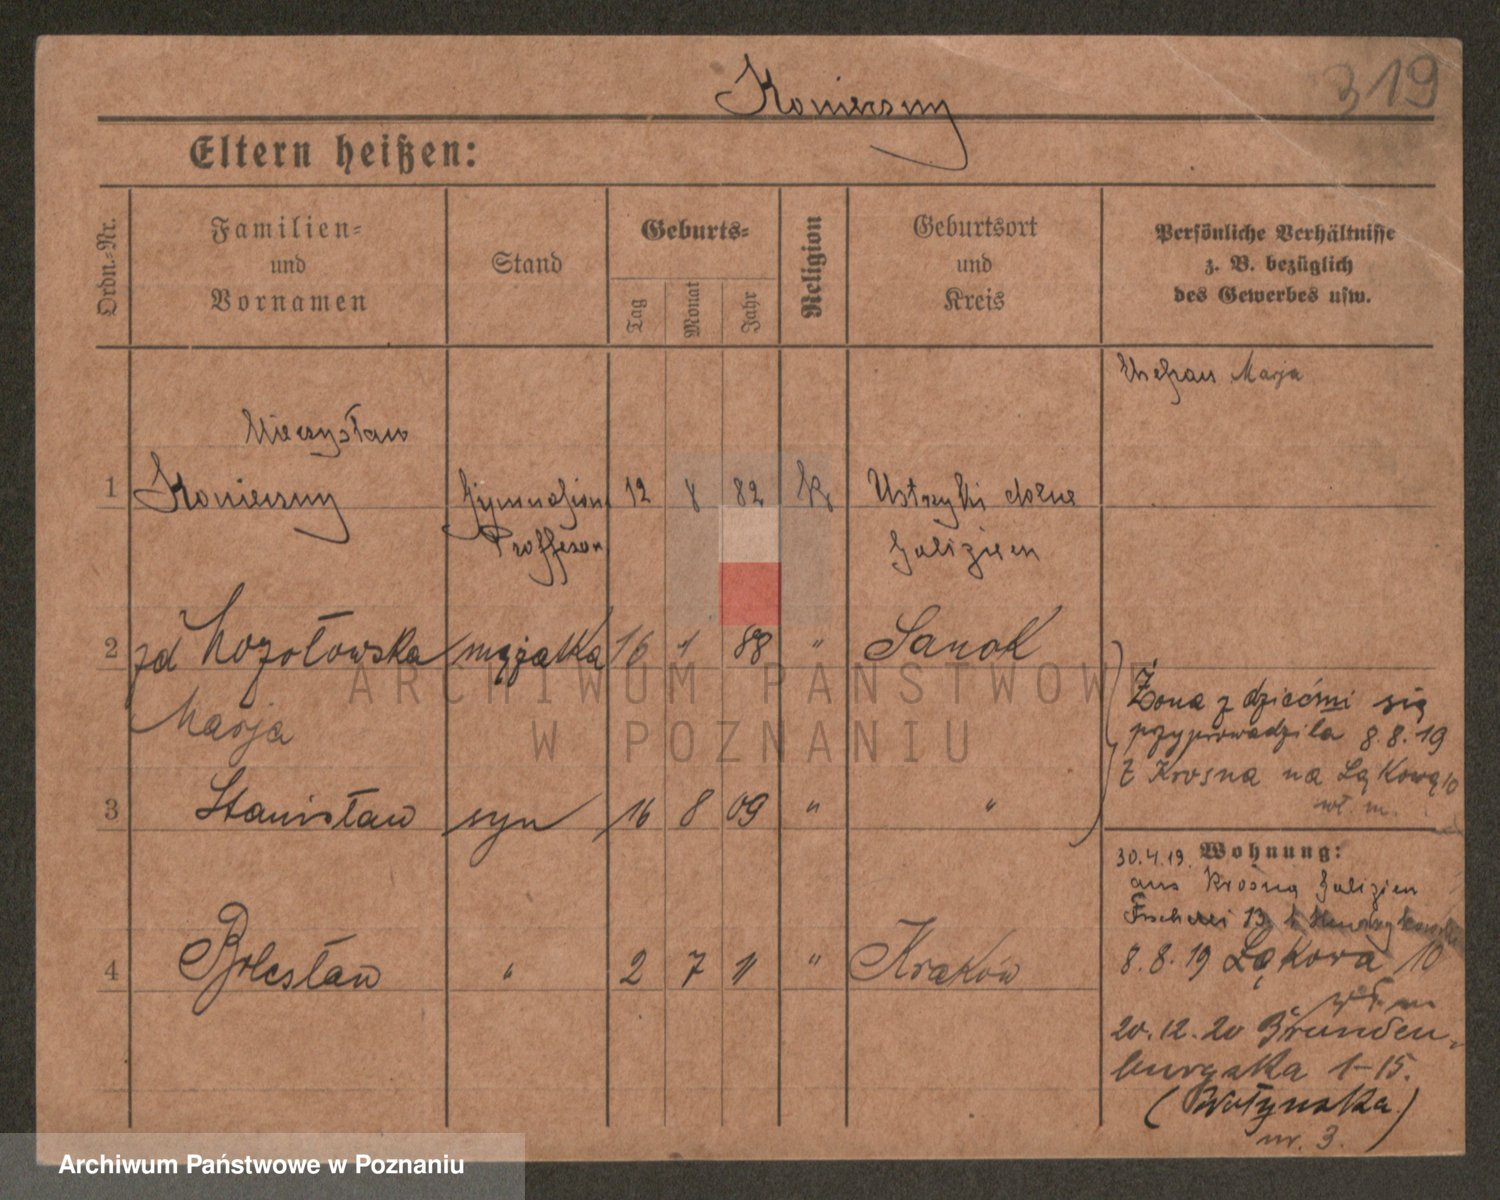 Konierzny
319
Eltern heißen:
Ordn.-Nr.
Familien-
und
Vornamen
Stand
Geburts-
Tag
Monat
Jahr
Religion
Geburtsort
und
Kreis
Persönliche Verhältnisse
z. B. bezüglich
des Gewerbes usw.
Ehefrau Marja
Mieczysław
1 Konierzny Gymnasion 12 8 82 k Ustrzyki dolne
Proffesor Galizien
2 zd Kozołowska mężatka 16 1 88 " Sanok
Marja
Żona z dziećmi się
przyprowadziła 8.8.19
z Krosna na Łąkową 10
wł. m.
3 Stanisław syn 16 8 09 " "
Wohnung:
30.4.19.
aus Krosna Galizien
Fischerei 13
4 Bolesław " 2 7 11 " Kraków
8.8.19 Łąkowa 10
wł. m
20.12.20 Branden-
burgska 1-15.
(Wołynska)
nr. 3.
ARCHIWUM PAŃSTWOWE
W POZNANIU
Archiwum Państwowe w Poznaniu